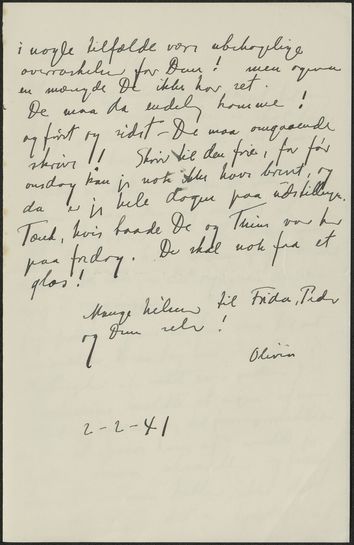 i nogle tilfælde være ubehagelige
overraskelser for Dem! men ogsaa
en mængde De ikke har set.
De maa da endelig komme!
og først og sidst – De maa omgaaende
skrive! Skriv til den frie, for før
onsdag kan jeg nok ikke have brevet, og
da er jeg hele dagen paa udstillingen.
Tænk, hvis baade De og Thiins var her
paa fredag. De skal nok faa et
glas!
Mange hilsner til Frida, Peder
og Dem selv!
2-2-41